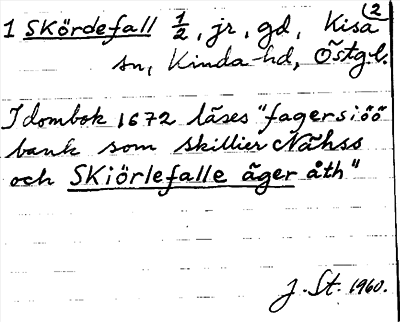 2
1 Skördefall 1/2, jr, gd, Kisa
sn, Kinda-hd, Östg.l.
I dombok 1672 läses "fagersiöö
bank som skillier Nähss
och Skiörlefalle äger åth"
J. St. 1960.